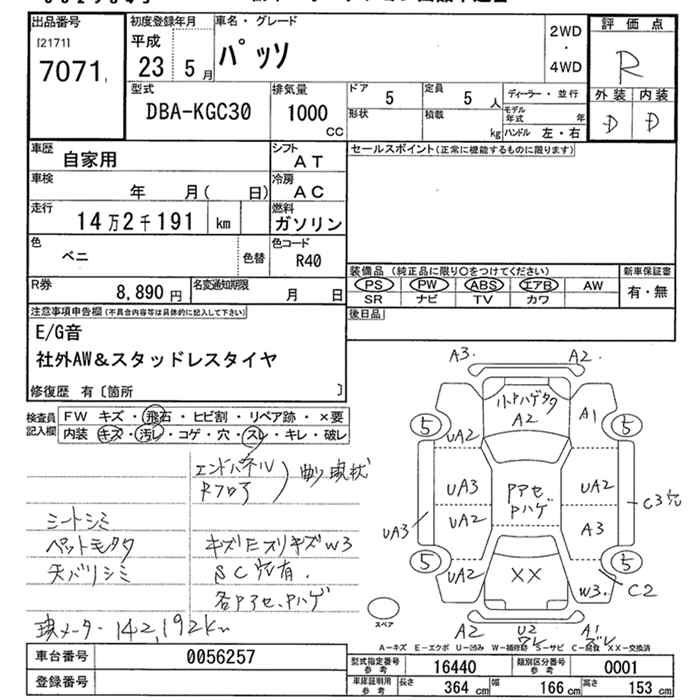 出品番号
[2171]
7071
初度登録年月
平成
23 5月
車名・グレード
パッソ
2WD
・
4WD
評価点
R
外装 内装
D D
型式
DBA-KGC30
排気量
1000
CC
ドア
5
定員
5 人
ディーラー・並行
形状
積載
kg
モデル年式 年
ハンドル 左・右
車歴
自家用
シフト
AT
セールスポイント(正常に機能するものに限ります)
車検
年 月( 日)
冷房
AC
走行
14万2千191 km
燃料
ガソリン
色
ベニ
色替
色コード
R40
装備品 (純正品に限り○をつけてください)
新車保証書
PS PW ABS エアB AW
有・無
SR ナビ TV カワ
R券
8,890円
名変通知期限
月 日
後日品
注意事項申告欄(不具合内容等は具体的に記入して下さい)
E/G音
社外AW&スタッドレスタイヤ
修復歴 有〔箇所 〕
検査員記入欄
FW キズ・飛石・ヒビ割・リペア跡・×要
内装 キズ・汚レ・コゲ・穴・スレ・キレ・破レ
エンドパネル
Rフロア
曲り現状
シートシミ
ペットモケタ
天バリシミ
キズEスリキズW3
SC穴有.
各Pアセ、Pハゲ
現メーター 142,192km
A3. A2.
小キハゲタク
A2
A1
5 5
UA2
UA3 UA2
Pアセ
Pハゲ
UA3 UA2 A3
C3穴
5 5
UA2
XX
W3. C2
スペア
A2 U2 A1
ワレ ズレ
A-キズ E-エクボ U-凹み W-補修跡 S-サビ C-腐食 XX-交換済
車台番号
0056257
登録番号
型式指定番号
参考
16440
類別区分番号
参考
0001
車庫証明用
参考
長さ 364 cm
幅 166 cm
高さ 153 cm